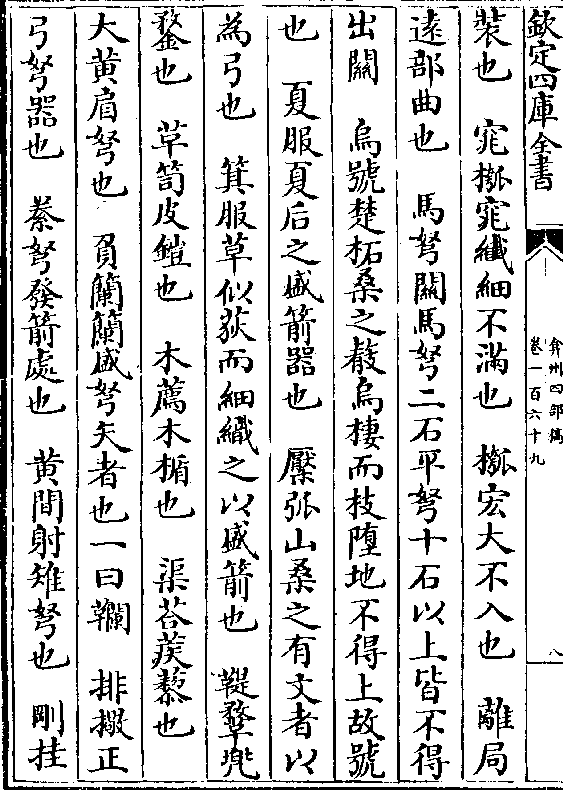 欽定四庫全書
弇州四部稿
卷一百六十九
八
裝也　窕槬窕纖細不滿也　槬宏大不入也　離局
遠部曲也　馬弩關馬弩二石平弩十石以上皆不得
出關　烏號楚柘桑之敲烏棲而枝墮地不得上故號
也　夏服夏后之盛箭器也　檿弧山桑之有文者以
為弓也　箕服草似荻而細織之以盛箭也　鞮鞪兜
鍪也　草笥皮鎧也　木薦木楯也　渠荅蒺藜也
大黃肩弩也　負蘭蘭盛弩矢者也一曰韊　排檠正
弓弩器也　絭弩發箭處也　黃間射雉弩也　剛挂